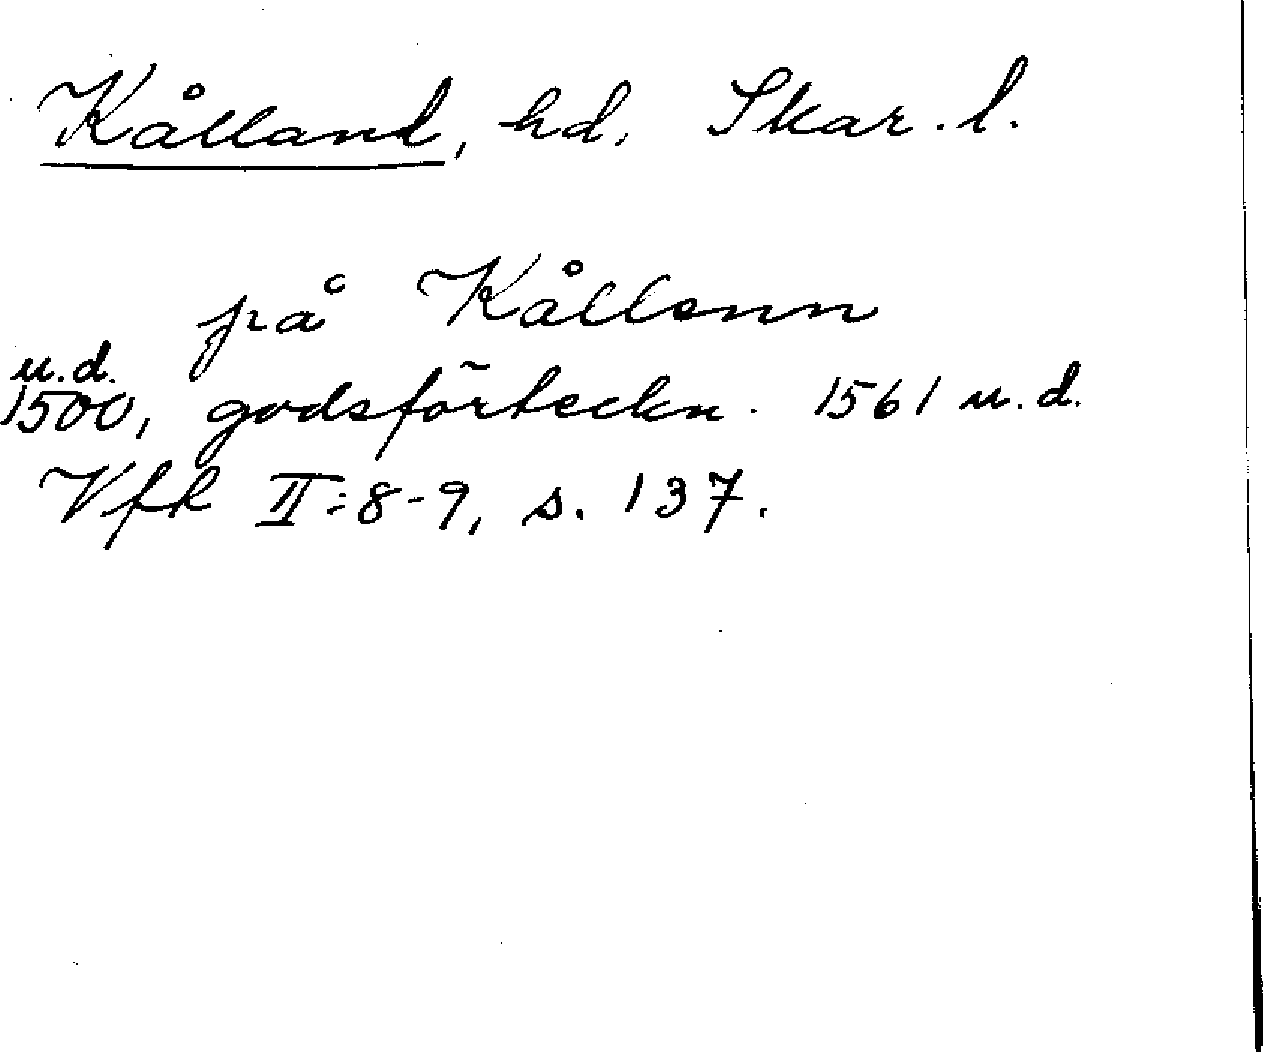 Kålland, hd. Skar. l.
på Kållann
u.d.
1500, godsförteckn. 1561 u.d.
Vfk II:8-9, s. 137.